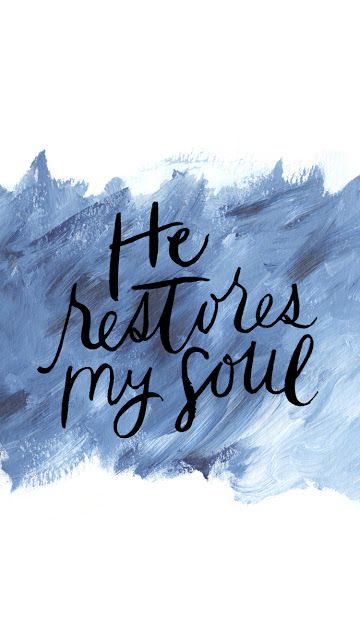 He
restores
my soul